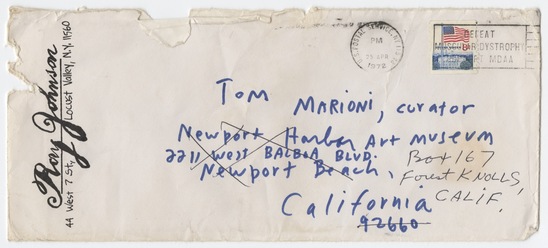 Ray Johnson
44 West 7 St, Locust Valley, N.Y. 11560
U.S. POSTAL SERVICE NY
PM
1972
DEFEAT
MUSCULAR DYSTROPHY
MDAA
Tom MARIONI, curator
Newport Harbor Art Museum
2211 West BALBOA BLVD.
Newport Beach,
California
92660
Box 167
Forest KNOLLS
CALIF.